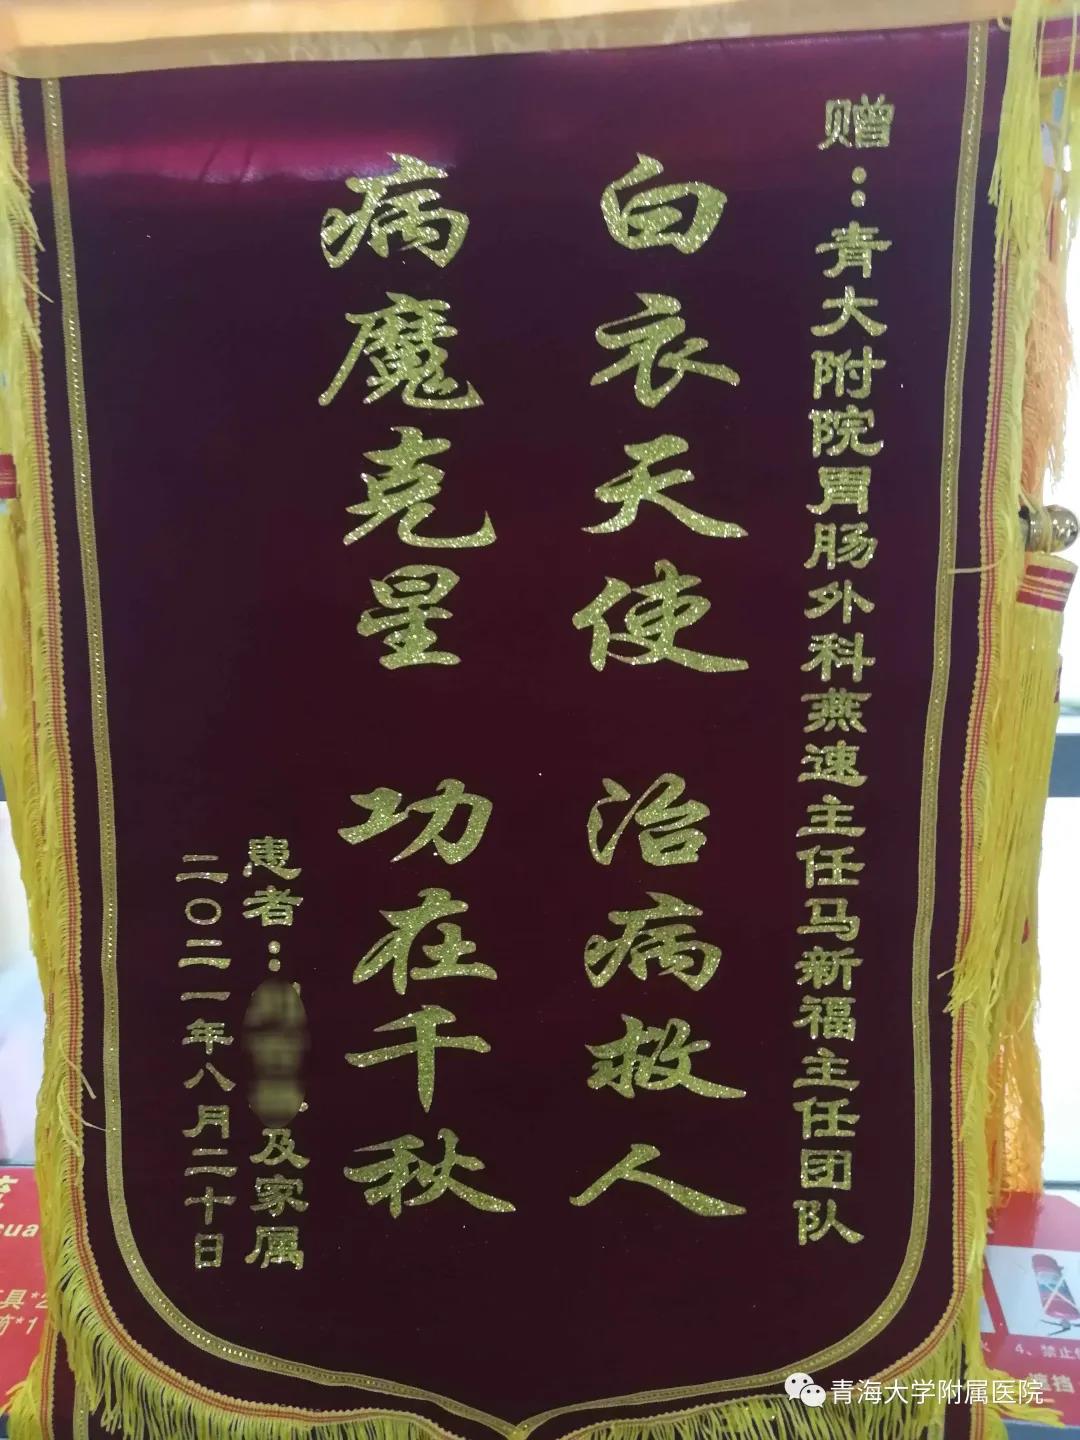 赠：青大附院胃肠外科燕速主任马新福主任团队
白衣天使 治病救人
病魔克星 功在千秋
患者：及家属
二〇二一年八月二十日
cua
具*2
*1
4、禁止
挡
青海大学附属医院